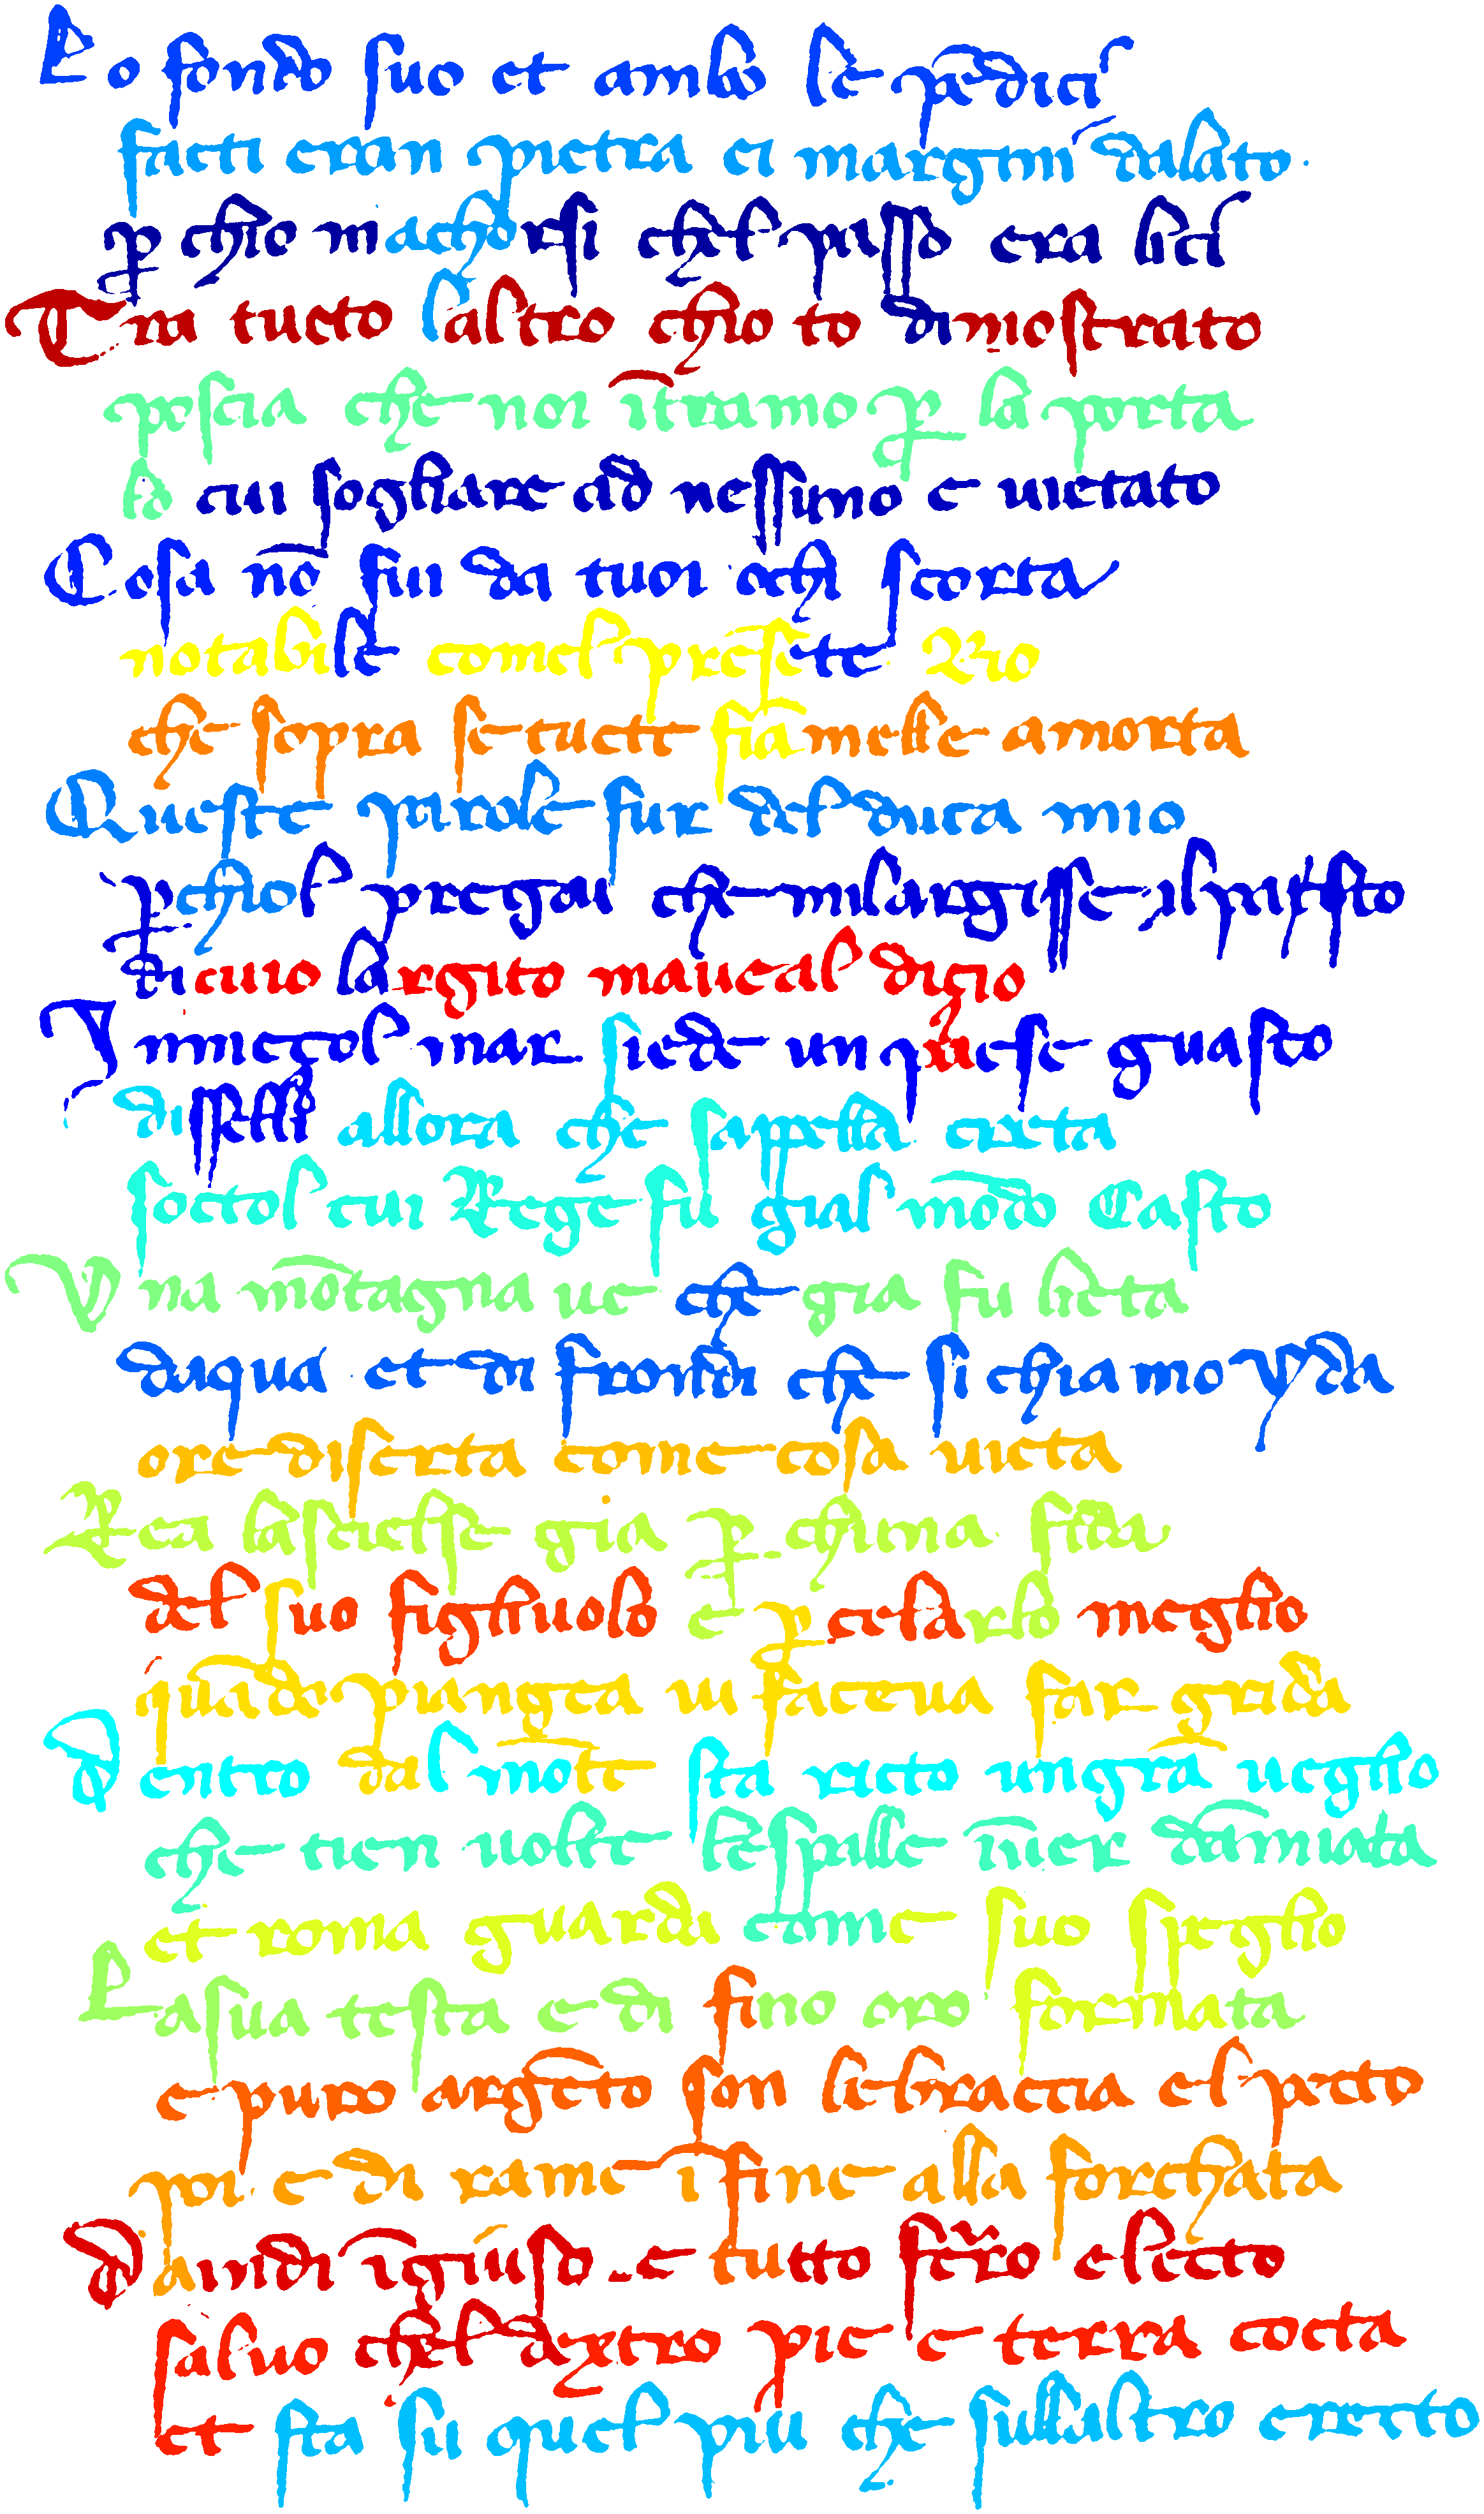 Lo fondo suo et ambo le pendici
facti eran pietra e i margini dalato.
p chio maccorsi chel passo era lici
Tra tucto laltro chio to dimostrato
poscia che noi ītramo p la porta
lo cui sogliare ad nessuno e vietato
Cosa nō fu da tuoi occhi scorta
notabile comel presēte rio
che sopra se tucte fiāmelle amorta
Queste parole fur del duca mio
p chiol pregai che mi largisse il pasto
di cui largito mavea el disio
In mezol mar siede un paese guasto
dissel elli allora che sappella creta
soctol cui rege fu gial mōdo casto
Una mōtagna ve che gia fu lieta
dacqua et di frondi che si chiamo yda
ore diserta come cosa vieta
Rea la scelse gia p cuna fida
del suo figliuolo et p celarlo meglio
quādo piangea vi facea far grida
Dentro dal mōte sta ricto un grā veglio
che tien volte le spalle īver dāmiata
et roma guarda come suo speglio
La sua testa e di fino oro formata
e puro argēto son le braccia el pecto
poi e di rame īfine alla forchata
Da indi īgiuso e tucto ferro electo
salvo chel dextro pie e terra cocta
et sta su quel piu che su laltro erecto